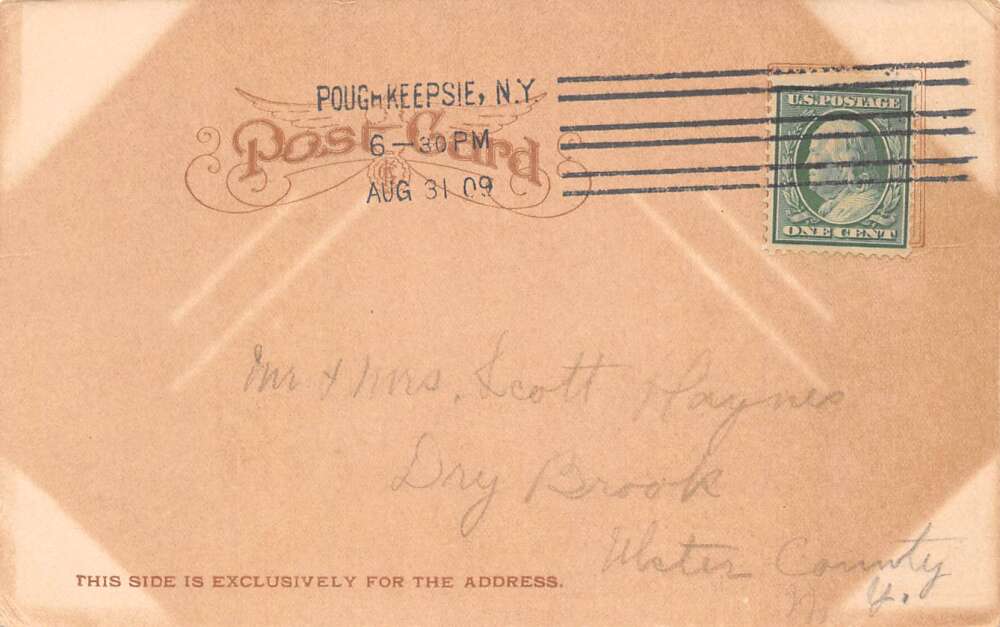 POUGhKEEPSIE, N.Y.
6-30PM
AUG 31 09
Post Card
U.S. POSTAGE
ONE CENT
Mr & Mrs. Scott Haynes
Dry Brook
Ulster County
N. Y.
THIS SIDE IS EXCLUSIVELY FOR THE ADDRESS.